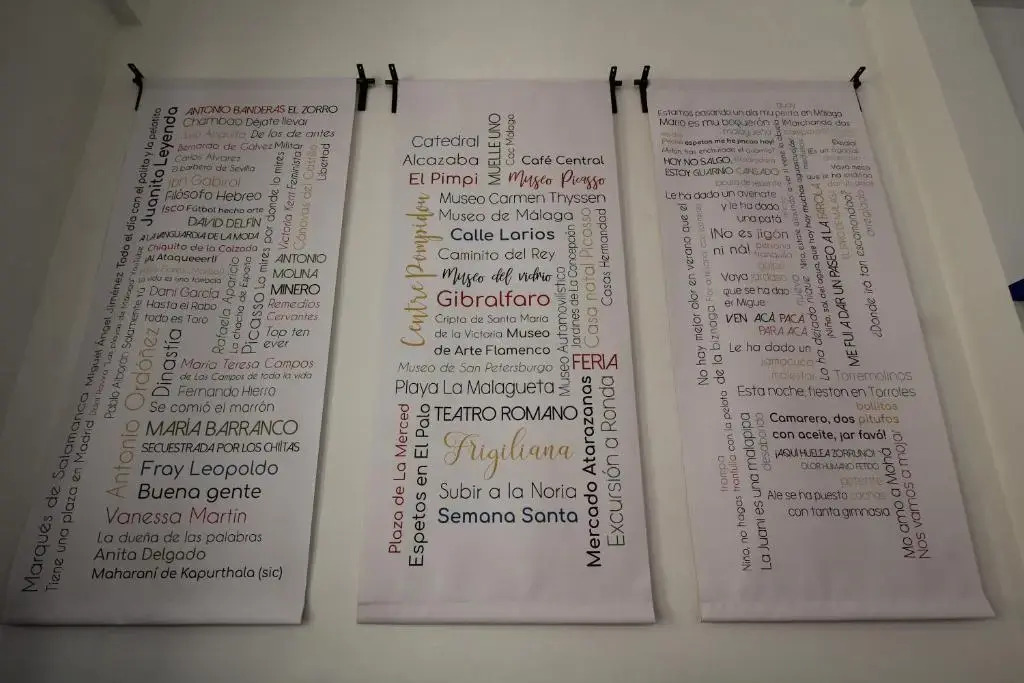 Marqués de Salamanca
Tiene una plaza en Madrid
Miguel Ángel Jiménez Todo el día con el palito y la pelotita
Juanito Leyenda
ANTONIO BANDERAS EL ZORRO
Chambao Déjate llevar
De los de antes
Bernardo de Gálvez Militar
Carlos Álvarez
El barbero de Sevilla
Ibn Gabirol
Filósofo Hebreo
Isco Fútbol hecho arte
DAVID DELFÍN
A LA VANGUARDIA DE LA MODA
Chiquito de la Calzada
¡Al Ataqueeerl!
la vida es una tómbola
Dani García
Hasta el Rabo
todo es Toro
Victoria Kent Feminista
Cánovas del Castillo
Libertad
Picasso Lo mires por donde lo mires
Rafaela Aparicio
La chacha de España
ANTONIO
MOLINA
MINERO
Remedios
Cervantes
Top ten
ever
Pablo Alborán Solamente tú
Antonio Ordóñez
Dinastía
María Teresa Campos
de Las Campos de toda la vida
Fernando Hierro
Se comió el marrón
MARÍA BARRANCO
SECUESTRADA POR LOS CHIÍTAS
Fray Leopoldo
Buena gente
Vanessa Martín
La dueña de las palabras
Anita Delgado
Maharaní de Kapurthala (sic)
Catedral
Alcazaba
El Pimpi
MUELLE UNO
Cac Málaga
Café Central
Museo Picasso
Museo Carmen Thyssen
Museo de Málaga
Centre Pompidou
Calle Larios
Caminito del Rey
Museo del vidrio
Gibralfaro
Cripta de Santa María
de la Victoria Museo
de Arte Flamenco
Museo Automovilístico
Jardines de La Concepción
Casa natal Picasso
Casas Hermandad
Museo de San Petersburgo
FERIA
Playa La Malagueta
Plaza de La Merced
Espetos en El Palo
TEATRO ROMANO
Frigiliana
Subir a la Noria
Semana Santa
Mercado Atarazanas
Excursión a Ronda
Estamos pasando un día mu perita en Málaga
Mario es mu boquerón
¡Marchando dos
HOY NO SALGO,
ESTOY GUARNÍO CANSADO
Le ha dado un avenate
y le ha dado
una patá
¡No es jigón
ni ná!
Vaya
que se ha dao
er Migue
VEN ACÁ PACÁ
PARA ACÁ
Le ha dado un
jamacuco
malestar
No hay mejor olor en verano que el
de la biznaga
ME FUI A DAR UN PASEO A LA FAROLA
¿Donde irá tan escamondao?
Torremolinos
Esta noche, fiestón en Torroles
bollitos
Camarero, dos pitufos
con aceite, ¡ar favó!
¡AQUÍ HUELE A ZORRUNO!
OLOR HUMANO FÉTIDO
potente
Ale se ha puesto cachas
con tanta gimnasia
trampa
Niño, no hagas trantulla con la pelota
La Juani es una malapipa
desaboría
Mo amo a Moná
Nos vamos a mojar